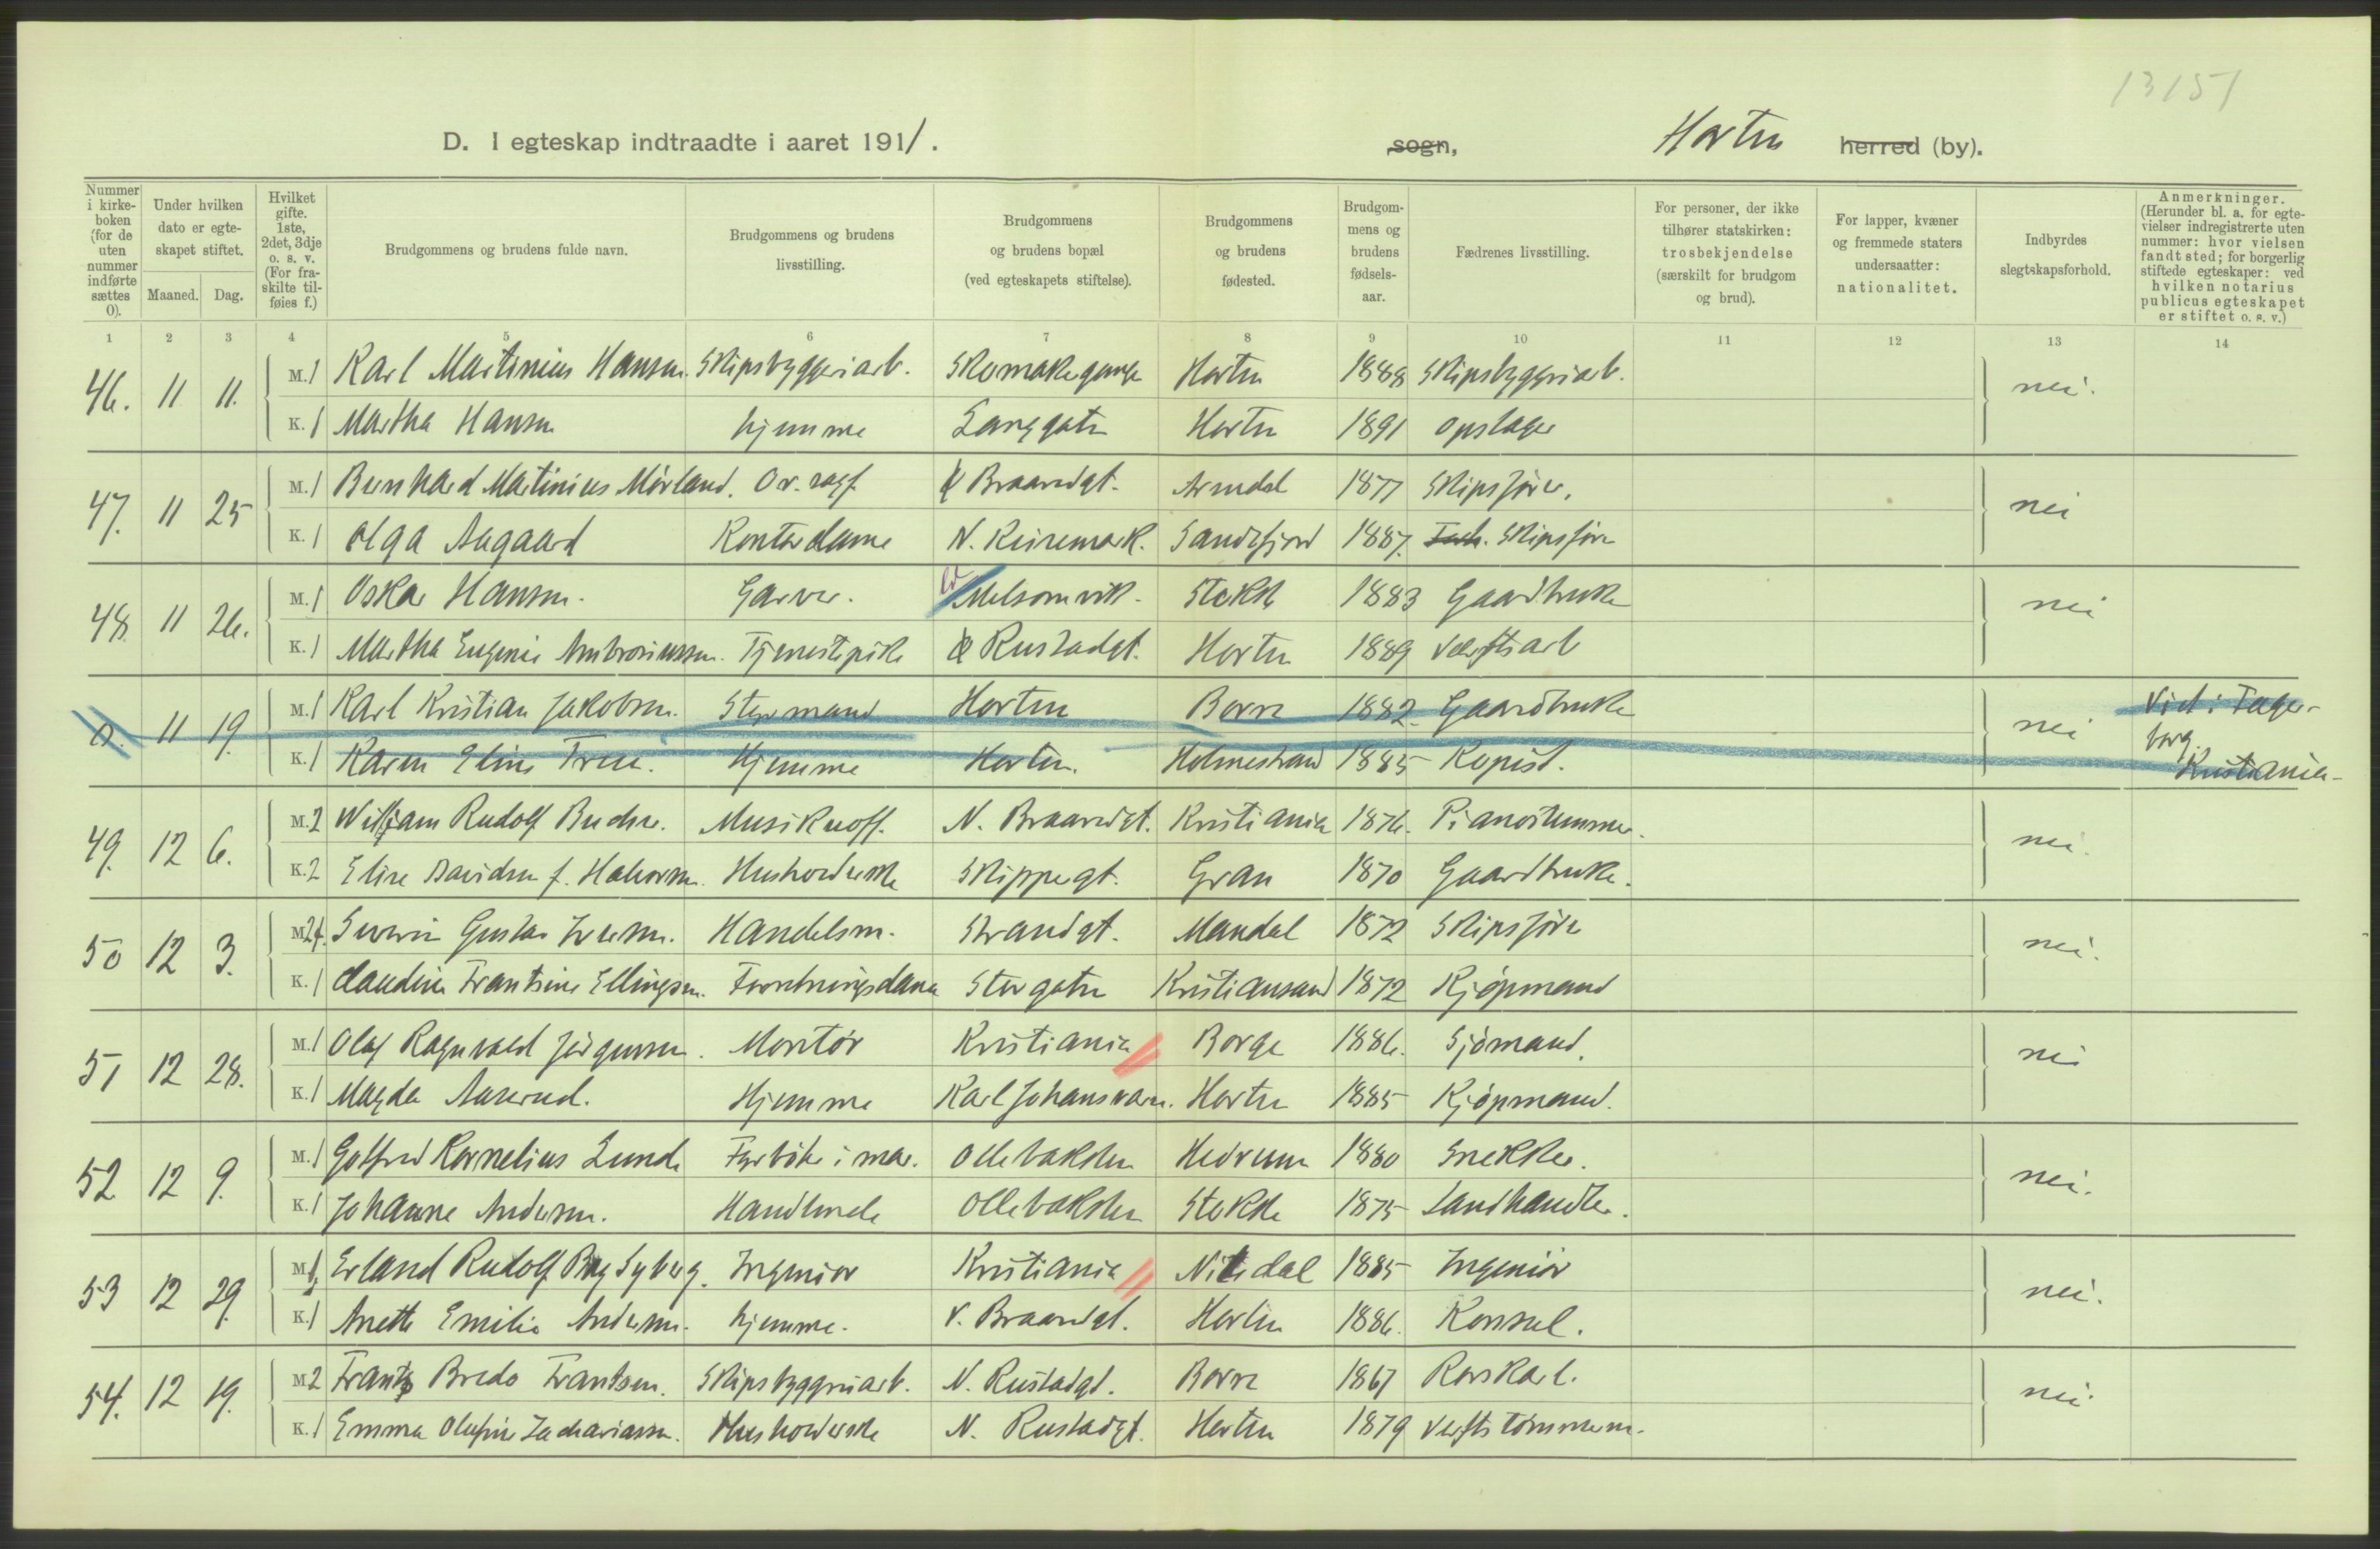 13151
D. I egteskap indtraadte i aaret 1911. sogn, Horten herred (by).
Nummer i kirkeboken (for de uten nummer indførte sættes 0).
Under hvilken dato er egteskapet stiftet.
Maaned. Dag.
Hvilket gifte. 1ste, 2det, 3dje o. s. v. (For fraskilte tilføies f.)
Brudgommens og brudens fulde navn.
Brudgommens og brudens livsstilling.
Brudgommens og brudens bopæl (ved egteskapets stiftelse).
Brudgommens og brudens fødested.
Brudgommens og brudens fødselsaar.
Fædrenes livsstilling.
For personer, der ikke tilhører statskirken: trosbekjendelse (særskilt for brudgom og brud).
For lapper, kvæner og fremmede staters undersaatter: nationalitet.
Indbyrdes slegtskapsforhold.
Anmerkninger. (Herunder bl. a. for egtevielser indregistrerte uten nummer: hvor vielsen fandt sted; for borgerlig stiftede egteskaper: ved hvilken notarius publicus egteskapet er stiftet o. s. v.)
1 2 3 4 5 6 7 8 9 10 11 12 13 14
46. 11 11. M. 1 Karl Martinius Hansen. Skipsbyggeriarb. Horten 1888 Skipsbyggeriarb. nei.
K. 1 Martha Hansen hjemme Langgaten Horten 1891 Opslager
47. 11 25 M. 1 Bernhard Martinius Mørland. Ov. sagf. Braarudgt. Arendal 1877 Skipsfører. nei
K. 1 Olga Aagaard Kontordame N. Keisemark. Sandefjord 1887. Skipsfører
48. 11 26. M. 1 Oskar Hansen. Garver. Melsomvik. Stokke 1883 Gaardbruker nei
K. 1 Martha Eugenie Ambrosiussen. Tjenestepike Rustadgt. Horten 1889 Verftsarb
0. 11 19. M. 1 Karl Kristian Jakobsen. Styrmand Horten Borre 1882. Gaardbruker nei Viet i Fager-
borg.
K. 1 Karen Eline Hjemme Horten. Holmestrand 1885 Kopist. Kristiania
49. 12 6. M. 2 William Rudolf Musikuoff. N. Braarudgt. Kristiania 1876. Pianostemmer. nei.
K. 2 Elise Davidsen f. Halvorsen. Husholderske Skippergt. Gran 1870 Gaardbruker.
50 12 3. M. 2f. Severin Gustav Iversen. Handelsm. Strandgt. Mandal 1872 Skipsfører nei.
K. 1 Claudine Frantsine Ellingsen. Forretningsdame Storgaten Kristiansand 1872 Kjøpmand
51 12 28. M. 1 Olaf Ragnvald Jørgensen. Montør Kristiania Borge 1886. Sjømand. nei
K. 1 Magda Aaserud. Hjemme Karl Johansvern. Horten 1885 Kjøpmand.
52 12 9. M. 1 Gotfred Kornelius Lunde Fyrbøter i mar. Ollebakken Hedrum 1880 Snekker. nei.
K. 1 Johanne Andersen. Handlende Ollebakken Stokke 1875 Landhandler.
53 12 29. M. 1 Erland Rudolf Syberg. Ingeniør Kristiania Nitedal 1885 Ingeniør nei.
K. 1 Anette Emilie Andersen. hjemme. V. Braarudgt. Horten 1886. Konsul.
54. 12 19. M. 2 Frantz Bredo Frantsen. Skipsbyggeriarb. N. Rustadgt. Borre 1867 Korskarl. nei.
K. 1 Emma Olufine Zachariassen. Husholderske N. Rustadgt. Horten 1879 Verftstømmerm.